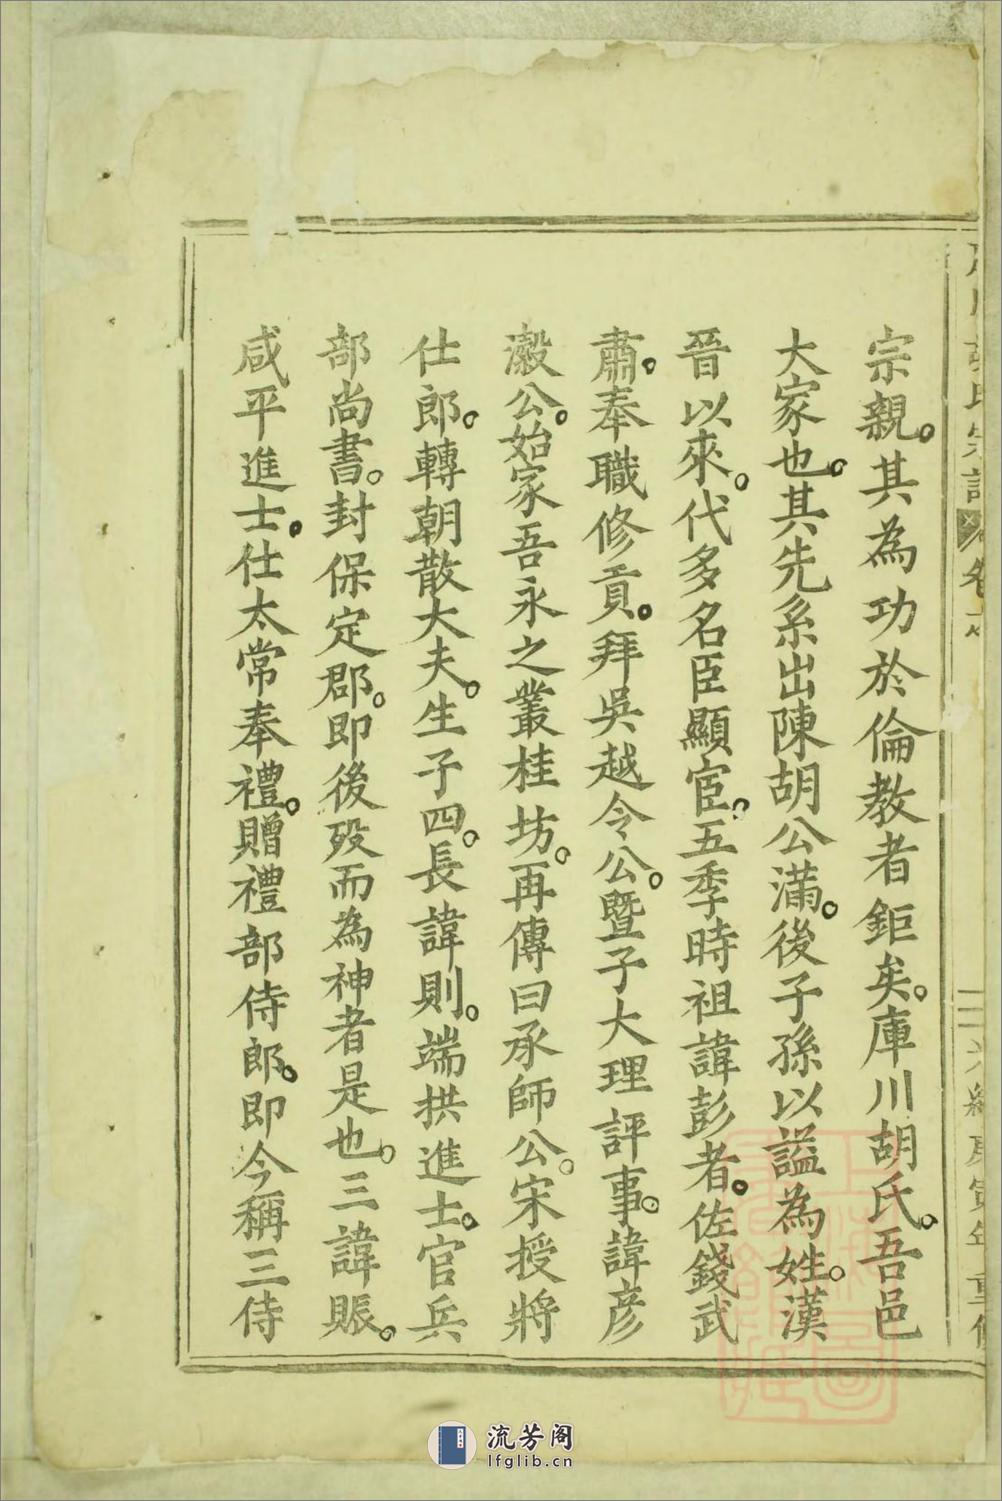 宗親。其為功於倫教者鉅矣。庫川胡氏。吾邑
大家也。其先系出陳胡公滿。後子孫以謚為姓。漢
晉以來。代多名臣顯宦。五季時祖諱彭者。佐錢武
肅。奉職修貢。拜吳越令公。暨子大理評事。諱彥
瀫公。始家吾永之叢桂坊。再傳曰承師公。宋授將
仕郎。轉朝散大夫。生子四。長諱則。端拱進士。官兵
部尚書。封保定郡。即後歿而為神者是也。三諱賑。
咸平進士。仕太常奉禮。贈禮部侍郎。即今稱三侍
胡氏宗譜 卷 庚寅年重修
流芳阁
lfglib.cn